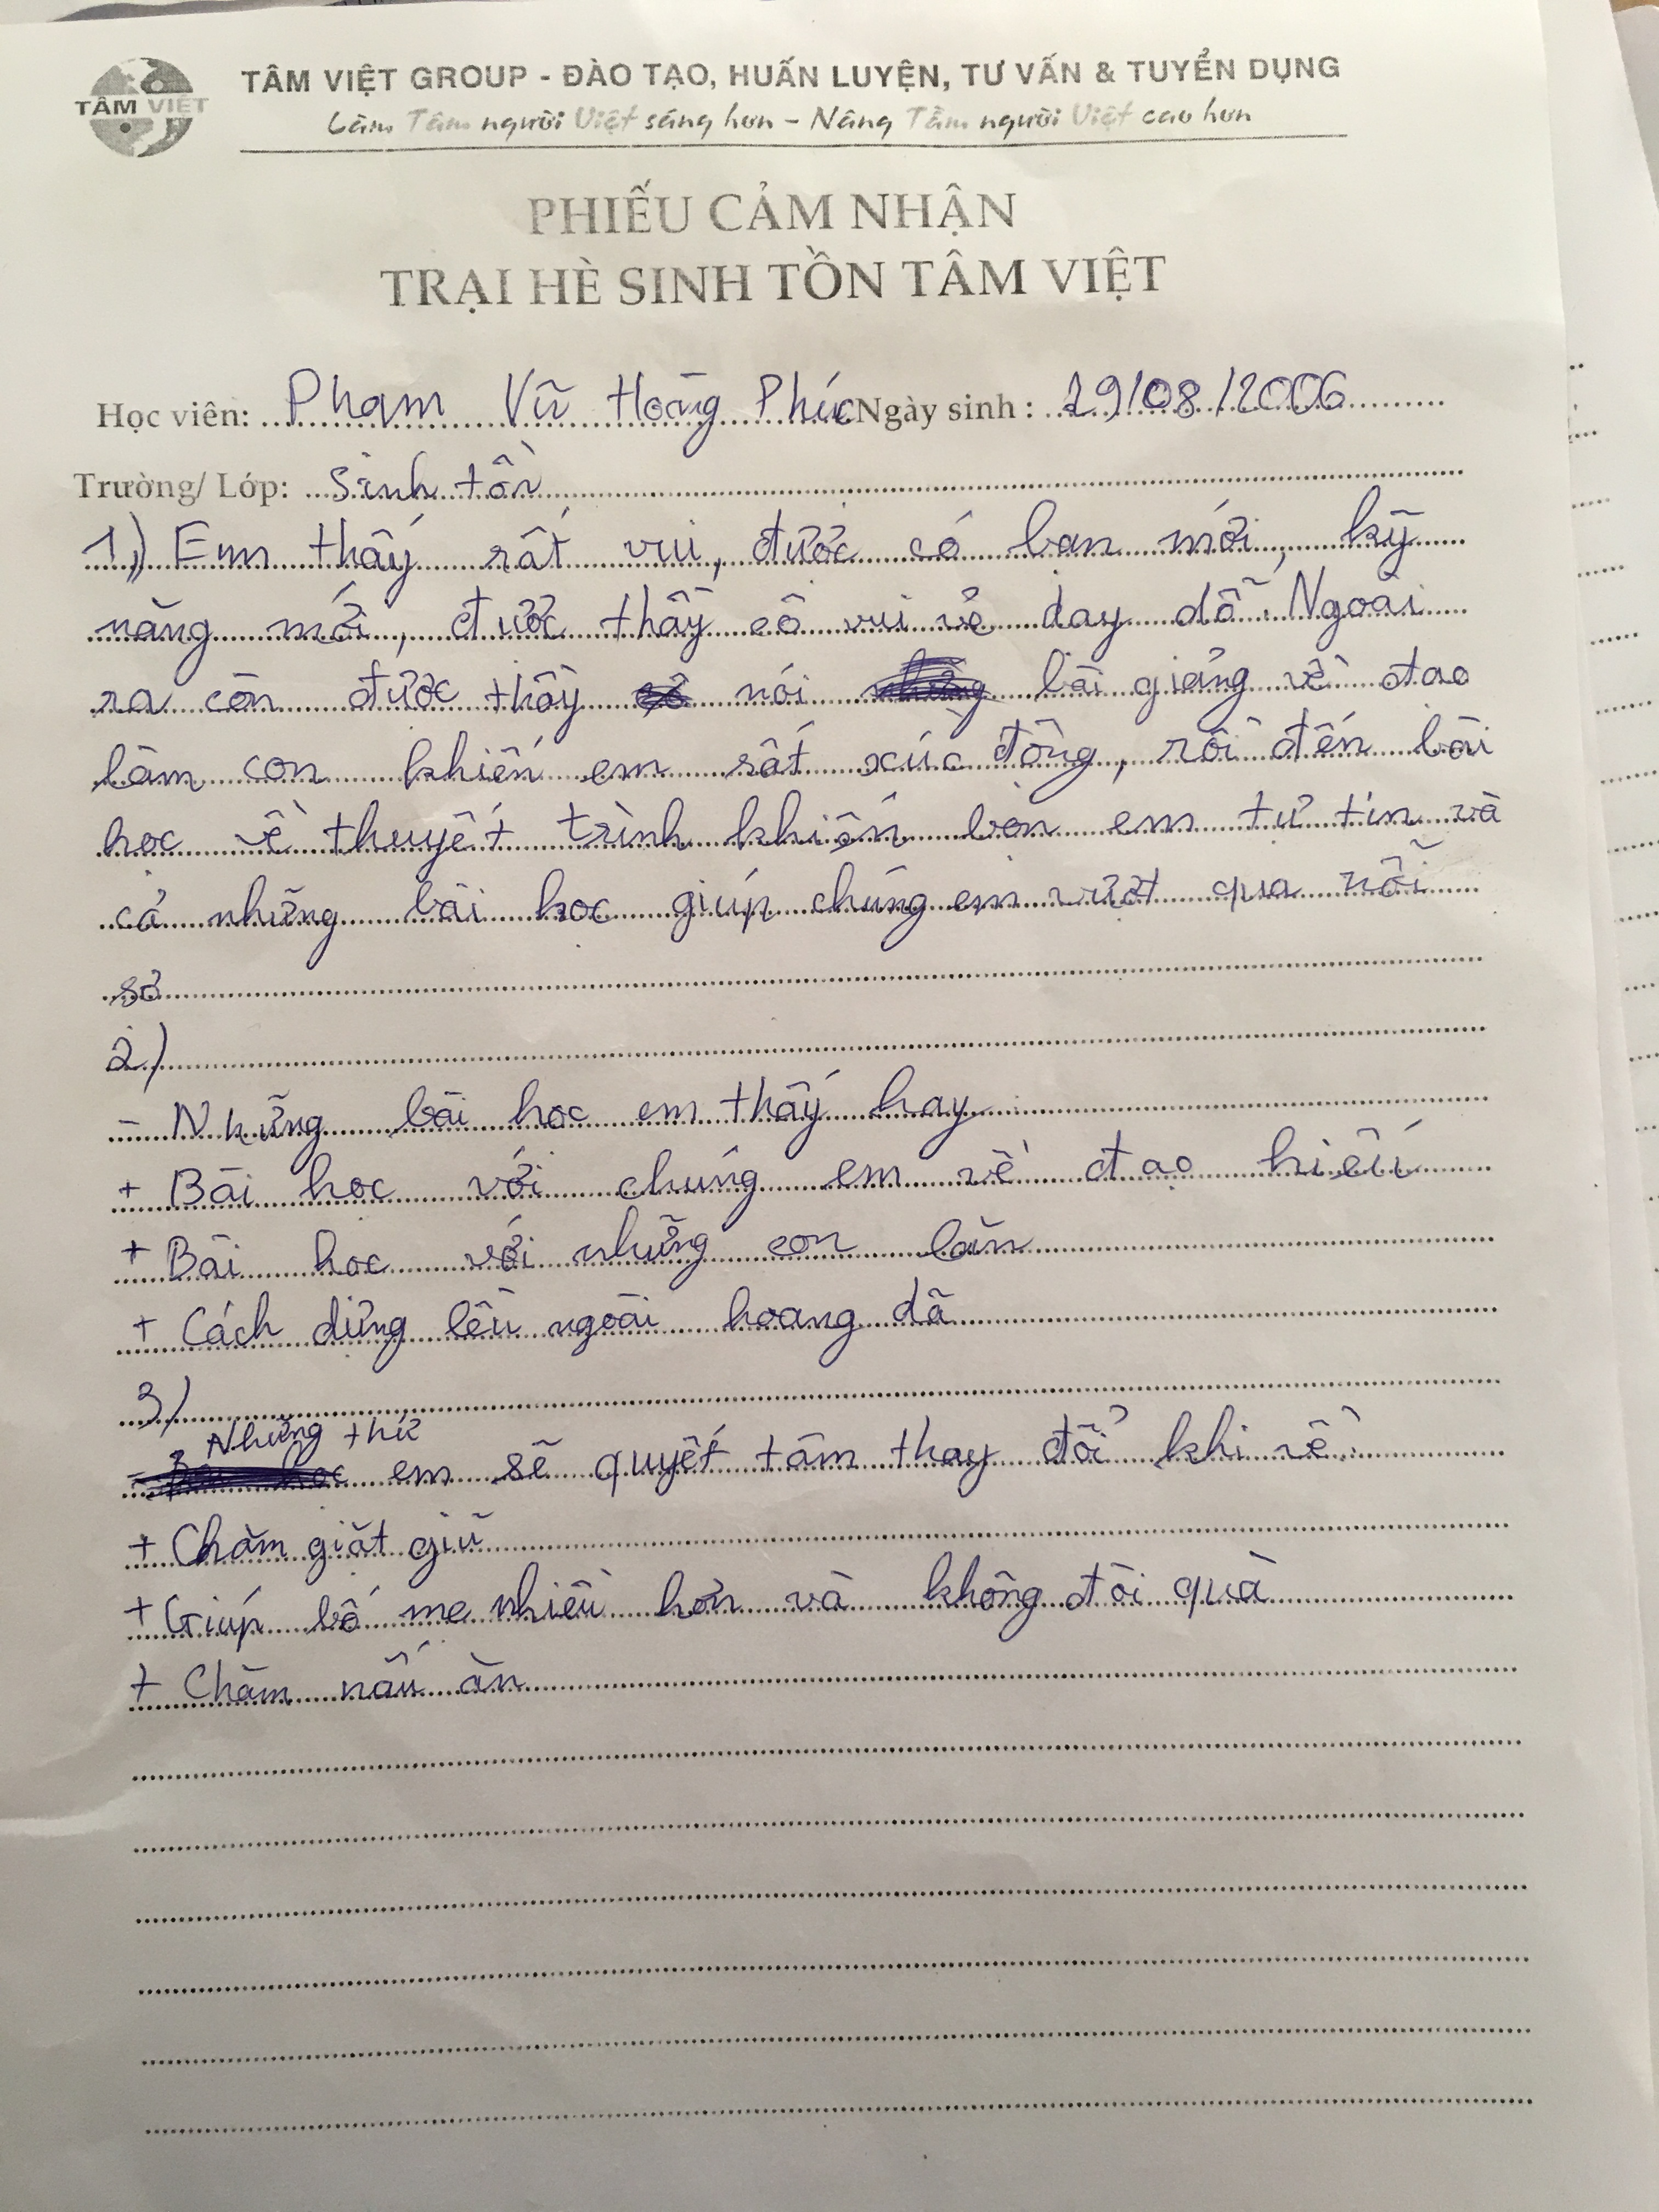 TÂM VIỆT
TÂM VIỆT GROUP - ĐÀO TẠO, HUẤN LUYỆN, TƯ VẤN & TUYỂN DỤNG
Làm Tâm người Việt sáng hơn - Nâng Tầm người Việt cao hơn
PHIẾU CẢM NHẬN
TRẠI HÈ SINH TỒN TÂM VIỆT
Học viên: Phạm Vũ Hoàng Phúc Ngày sinh : 29/08/2006
Trường/ Lớp: Sinh tồn
1) Em thấy rất vui, được có bạn mới, kỹ
năng mới, được thầy cô vui vẻ dạy dỗ. Ngoài
ra còn được thầy nói bài giảng về đạo
làm con khiến em rất xúc động, rồi đến bài
học về thuyết trình khiến bọn em tự tin và
cả những bài học giúp chúng em vượt qua nỗi
sợ
2)
- Những bài học em thấy hay
+ Bài học với chúng em về đạo hiếu
+ Bài học với những con lăn
+ Cách dựng lều ngoài hoang dã
3)
- Những thứ em sẽ quyết tâm thay đổi khi về
+ Chăm giặt giũ
+ Giúp bố mẹ nhiều hơn và không đòi quà
+ Chăm nấu ăn